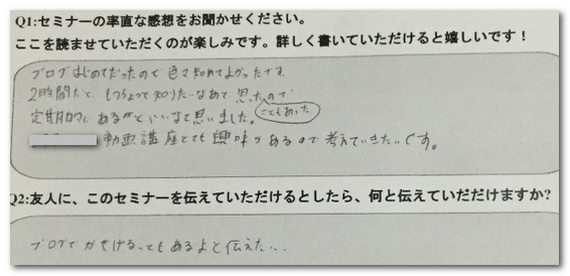 Q1:セミナーの率直な感想をお聞かせください。
ここを読ませていただくのが楽しみです。詳しく書いていただけると嬉しいです！
ブログはじめてだったので色々知れてよかったです。
2時間だと、もうちょっと知りたいなあて思ったので
こともあった
定期的に あるがといいなて思いました。
動画講座とても興味があるので考えていきたいです。
Q2:友人に、このセミナーを伝えていただけるとしたら、何と伝えていだだけますか？
ブログでかせげることもあるよと伝えたい...